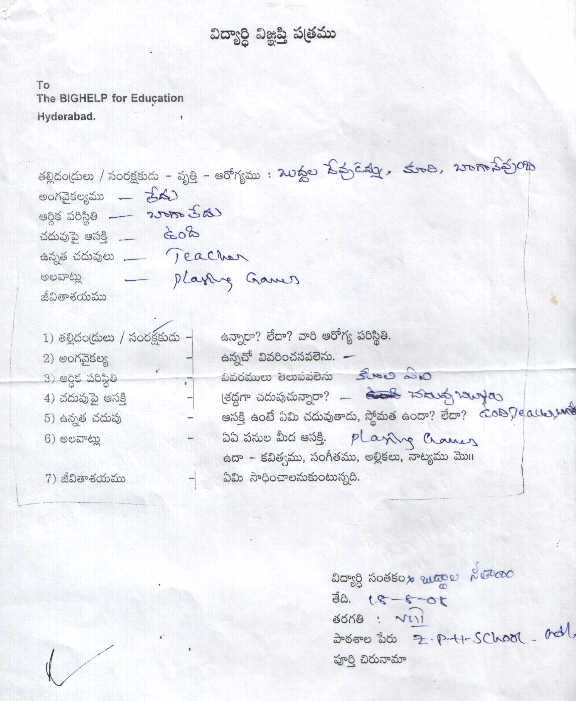 విద్యార్ధి విజ్ఞప్తి పత్రము
To
The BIGHELP for Education
Hyderabad.
తల్లిదండ్రులు / సంరక్షకుడు - వృత్తి - ఆరోగ్యము : బుద్దల
అంగవైకల్యము — లేదు
ఆర్ధిక పరిస్థితి — బాగాలేదు
చదువుపై ఆసక్తి — ఉంది
ఉన్నత చదువులు — Teacher
అలవాట్లు — playing Games
జీవితాశయము
1) తల్లిదండ్రులు / సంరక్షకుడు - ఉన్నారా? లేదా? వారి ఆరోగ్య పరిస్థితి.
2) అంగవైకల్య - ఉన్నచో వివరించవలెను. -
3) ఆర్ధిక పరిస్థితి - వివరములు తెలుపవలెను
4) చదువుపై ఆసక్తి - శ్రద్దగా చదువుచున్నారా? -
5) ఉన్నత చదువు - ఆసక్తి ఉంటే ఏమి చదువుతాడు, స్థోమత ఉందా? లేదా? ఉంది, Teacher,
6) అలవాట్లు - ఏఏ పనుల మీద ఆసక్తి. playing Games
ఉదా - కవిత్వము, సంగీతము, అల్లికలు, నాట్యము మొ॥
7) జీవితాశయము - ఏమి సాధించాలనుకుంటున్నది.
విద్యార్ధి సంతకం బుద్దల
తేది. 18-8-08
తరగతి : VIII
పాఠశాల పేరు Z.P.H.School.
పూర్తి చిరునామా